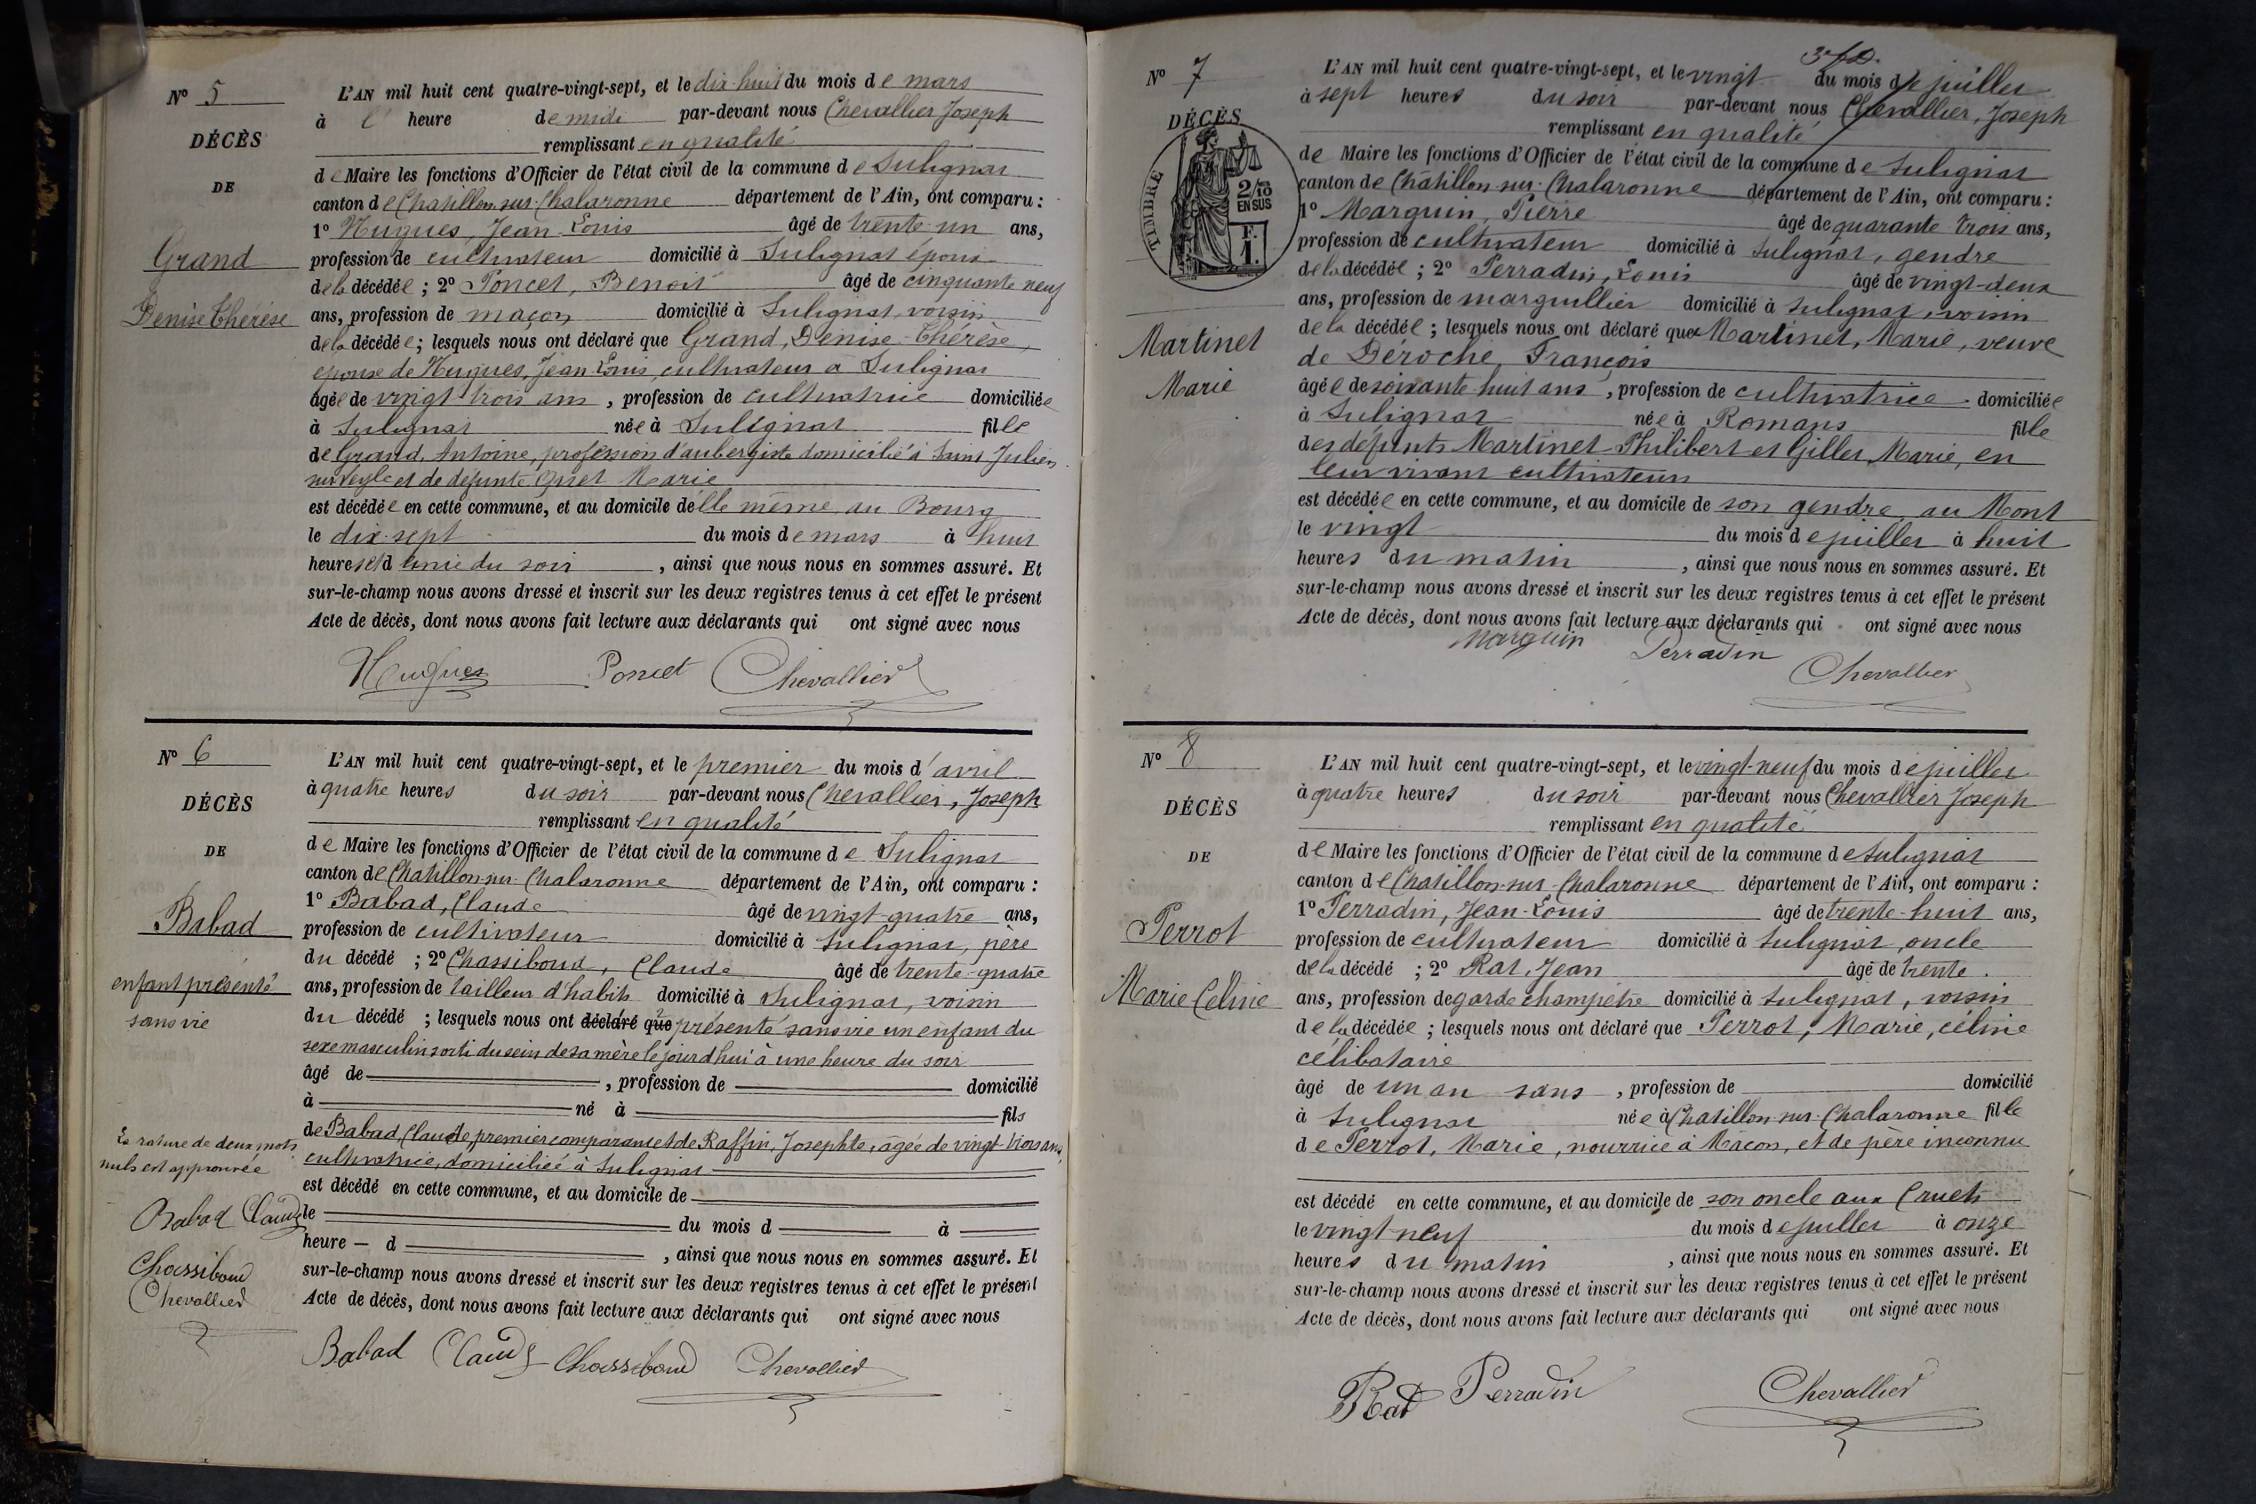 N° 5
DÉCÈS
DE
Grand
Denise Thérèse
L'AN mil huit cent quatre-vingt-sept, et le dix huit du mois de mars
à l' heure de midi par-devant nous Chevallier Joseph
remplissant en qualité
de Maire les fonctions d'Officier de l'état civil de la commune de Sulignat
canton de Chatillon sur Chalaronne département de l'Ain, ont comparu :
1° Hugues, Jean Louis âgé de trente un ans,
profession de cultivateur domicilié à Sulignat époux
de la décédée ; 2° Poncet, Benoit âgé de cinquante neuf
ans, profession de maçon domicilié à Sulignat voisin
de la décédée ; lesquels nous ont déclaré que Grand, Denise Thérèse,
épouse de Hugues, Jean Louis, cultivateur à Sulignat
âgée de vingt trois ans, profession de cultivatrice domiciliée
à Sulignat née à Sulignat fille
de Grand, Antoine, profession d'aubergiste domicilié à Saint Julien
sur Veyle et de défunte Marie
est décédée en cette commune, et au domicile d'elle même au Bourg
le dix-sept du mois de mars à huit
heures et demie du soir, ainsi que nous nous en sommes assuré. Et
sur-le-champ nous avons dressé et inscrit sur les deux registres tenus à cet effet le présent
Acte de décès, dont nous avons fait lecture aux déclarants qui ont signé avec nous
Hugues Poncet Chevallier
N° 6
DÉCÈS
DE
Babad
enfant présenté
sans vie
La rature de deux mots
nuls est approuvée
Babad Claude
Chassiboud
Chevallier
L'AN mil huit cent quatre-vingt-sept, et le premier du mois d'avril
à quatre heures du soir par-devant nous Chevallier, Joseph
remplissant en qualité
de Maire les fonctions d'Officier de l'état civil de la commune de Sulignat
canton de Chatillon-sur-Chalaronne département de l'Ain, ont comparu :
1° Babad, Claude âgé de vingt-quatre ans,
profession de cultivateur domicilié à Sulignat, père
du décédé ; 2° Chassiboud, Claude âgé de trente-quatre
ans, profession de tailleur d'habits domicilié à Sulignat, voisin
du décédé ; lesquels nous ont déclaré que présenté sans vie un enfant du
sexe masculin sorti du sein de sa mère le jourd'hui à une heure du soir
âgé de , profession de domicilié
à né à fils
de Babad Claude premier comparant et de Raffin, Josephte, âgée de vingt trois ans,
cultivatrice, domiciliée à Sulignat
est décédé en cette commune, et au domicile de
le du mois d à
heure d , ainsi que nous nous en sommes assuré. Et
sur-le-champ nous avons dressé et inscrit sur les deux registres tenus à cet effet le présent
Acte de décès, dont nous avons fait lecture aux déclarants qui ont signé avec nous
Babad Claude Chassiboud Chevallier
N° 7
DÉCÈS
TIMBRE
2/10
EN SUS
F.
1.
Martinet
Marie
L'AN mil huit cent quatre-vingt-sept, et le vingt du mois de juillet
à sept heures du soir par-devant nous Chevallier, Joseph
remplissant en qualité
de Maire les fonctions d'Officier de l'état civil de la commune de Sulignat
canton de Châtillon-sur-Chalaronne département de l'Ain, ont comparu :
1° Marguin, Pierre âgé de quarante trois ans,
profession de cultivateur domicilié à Sulignat, gendre
de la décédée ; 2° Perradin, Louis âgé de vingt-deux
ans, profession de marguillier domicilié à Sulignat, voisin
de la décédée ; lesquels nous ont déclaré que Martinet, Marie, veuve
de Déroche, François
âgée de soixante huit ans, profession de cultivatrice domiciliée
à Sulignat née à Romans fille
des défunts Martinet Philibert et Gilles, Marie, en
leur vivant cultivateurs
est décédée en cette commune, et au domicile de son gendre, au Mont
le vingt du mois de juillet à huit
heures du matin, ainsi que nous nous en sommes assuré. Et
sur-le-champ nous avons dressé et inscrit sur les deux registres tenus à cet effet le présent
Acte de décès, dont nous avons fait lecture aux déclarants qui ont signé avec nous
Marguin Perradin Chevallier
N° 8
DÉCÈS
DE
Perrot
Marie Celine
L'AN mil huit cent quatre-vingt-sept, et le vingt-neuf du mois de juillet
à quatre heures du soir par-devant nous Chevallier Joseph
remplissant en qualité
de Maire les fonctions d'Officier de l'état civil de la commune de Sulignat
canton de Chatillon-sur-Chalaronne département de l'Ain, ont comparu :
1° Perradin, Jean-Louis âgé de trente-huit ans,
profession de cultivateur domicilié à Sulignat, oncle
de la décédé ; 2° Rat, Jean âgé de trente
ans, profession de garde champêtre domicilié à Sulignat, voisin
de la décédée ; lesquels nous ont déclaré que Perrot, Marie, céline
célibataire
âgé de un an sans , profession de domicilié
à Sulignat née à Chatillon-sur-Chalaronne fille
de Perrot, Marie, nourrice à Mâcon, et de père inconnu
est décédé en cette commune, et au domicile de son oncle aux Cruets
le vingt-neuf du mois de juillet à onze
heures du matin, ainsi que nous nous en sommes assuré. Et
sur-le-champ nous avons dressé et inscrit sur les deux registres tenus à cet effet le présent
Acte de décès, dont nous avons fait lecture aux déclarants qui ont signé avec nous
Rat Perradin Chevallier